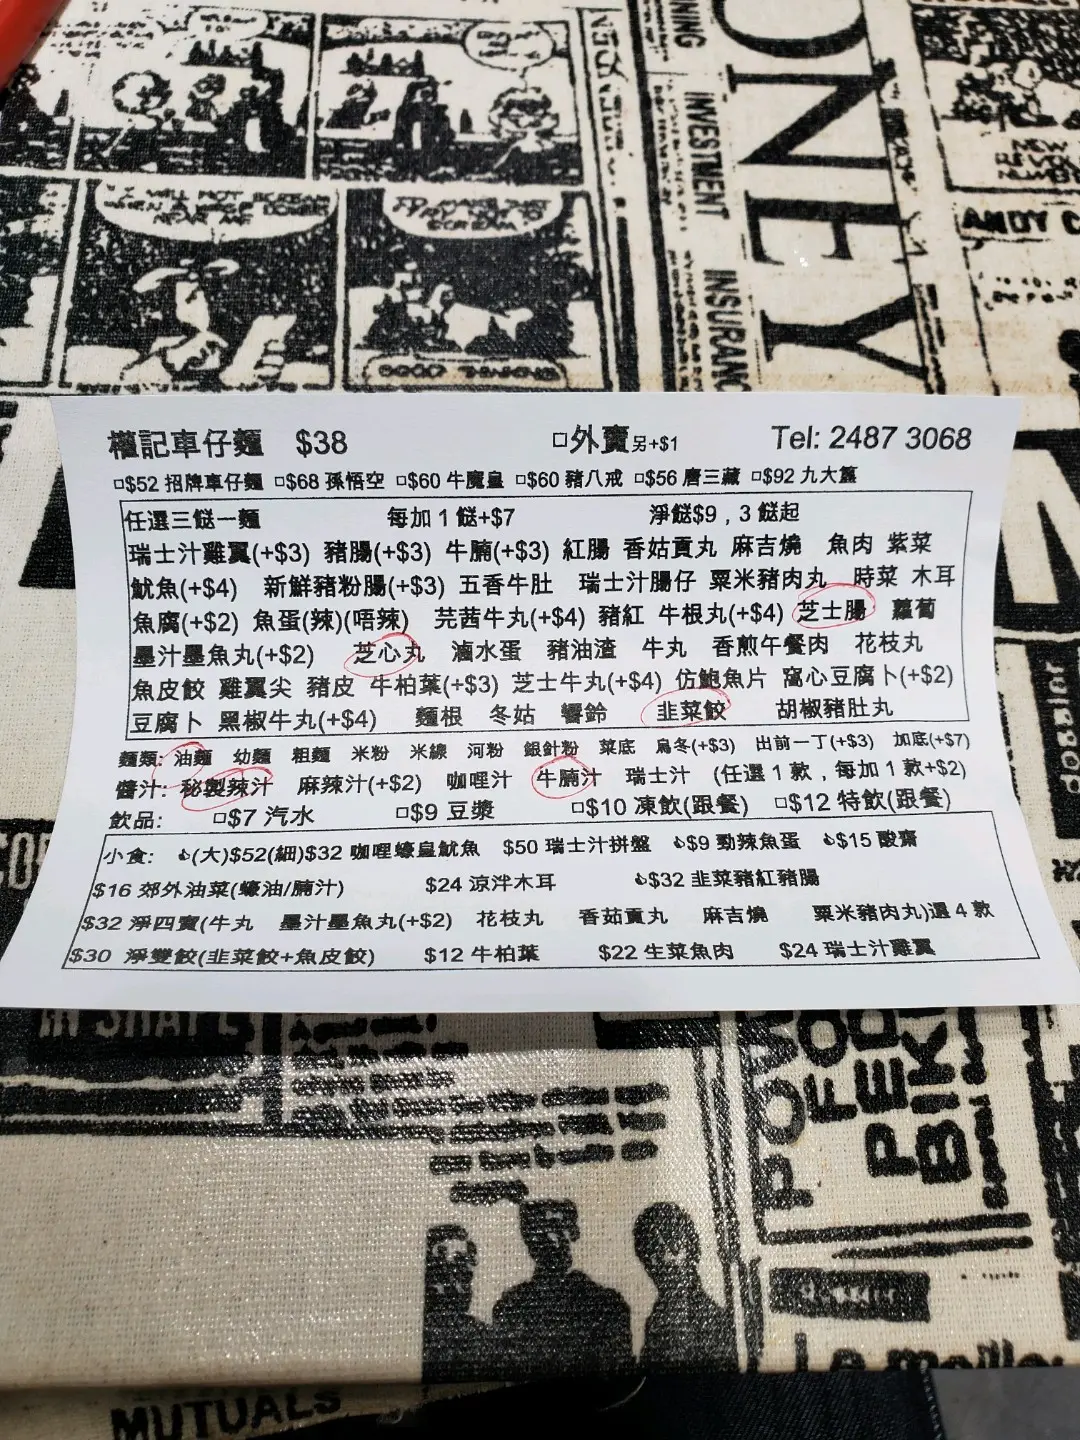 ONEY
INING
INVESTNENT
INSURANC
ANDY C
I WILL NOT SCREAM
NEAR ME
權記車仔麵 $38 □外賣另+$1 Tel: 2487 3068
□$52 招牌車仔麵 □$68 孫悟空 □$60 牛魔皇 □$60 豬八戒 □$56 唐三藏 □$92 九大簋
任選三餸一麵 每加 1 餸+$7 淨餸$9，3 餸起
瑞士汁雞翼(+$3) 豬腸(+$3) 牛腩(+$3) 紅腸 香菇貢丸 麻吉燒 魚肉 紫菜
魷魚(+$4) 新鮮豬粉腸(+$3) 五香牛肚 瑞士汁腸仔 粟米豬肉丸 時菜 木耳
魚腐(+$2) 魚蛋(辣)(唔辣) 芫茜牛丸(+$4) 豬紅 牛根丸(+$4) 芝士腸 蘿蔔
墨汁墨魚丸(+$2) 芝心丸 滷水蛋 豬油渣 牛丸 香煎午餐肉 花枝丸
魚皮餃 雞翼尖 豬皮 牛柏葉(+$3) 芝士牛丸(+$4) 仿鮑魚片 窩心豆腐卜(+$2)
豆腐卜 黑椒牛丸(+$4) 麵根 冬姑 響鈴 韭菜餃 胡椒豬肚丸
麵類: 油麵 幼麵 粗麵 米粉 米線 河粉 銀針粉 菜底 烏冬(+$3) 出前一丁(+$3) 加底(+$7)
醬汁: 秘製辣汁 麻辣汁(+$2) 咖哩汁 牛腩汁 瑞士汁 (任選 1 款，每加 1 款+$2)
飲品: □$7 汽水 □$9 豆漿 □$10 凍飲(跟餐) □$12 特飲(跟餐)
小食: 👍(大)$52(細)$32 咖哩蠔皇魷魚 $50 瑞士汁拼盤 👍$9 勁辣魚蛋 👍$15 酸齋
$16 郊外油菜(蠔油/腩汁) $24 涼泮木耳 👍$32 韭菜豬紅豬腸
$32 淨四寶(牛丸 墨汁墨魚丸(+$2) 花枝丸 香菇貢丸 麻吉燒 粟米豬肉丸)選 4 款
$30 淨雙餃(韭菜餃+魚皮餃) $12 牛柏葉 $22 生菜魚肉 $24 瑞士汁雞翼
IN SHAPE
MUTUALS